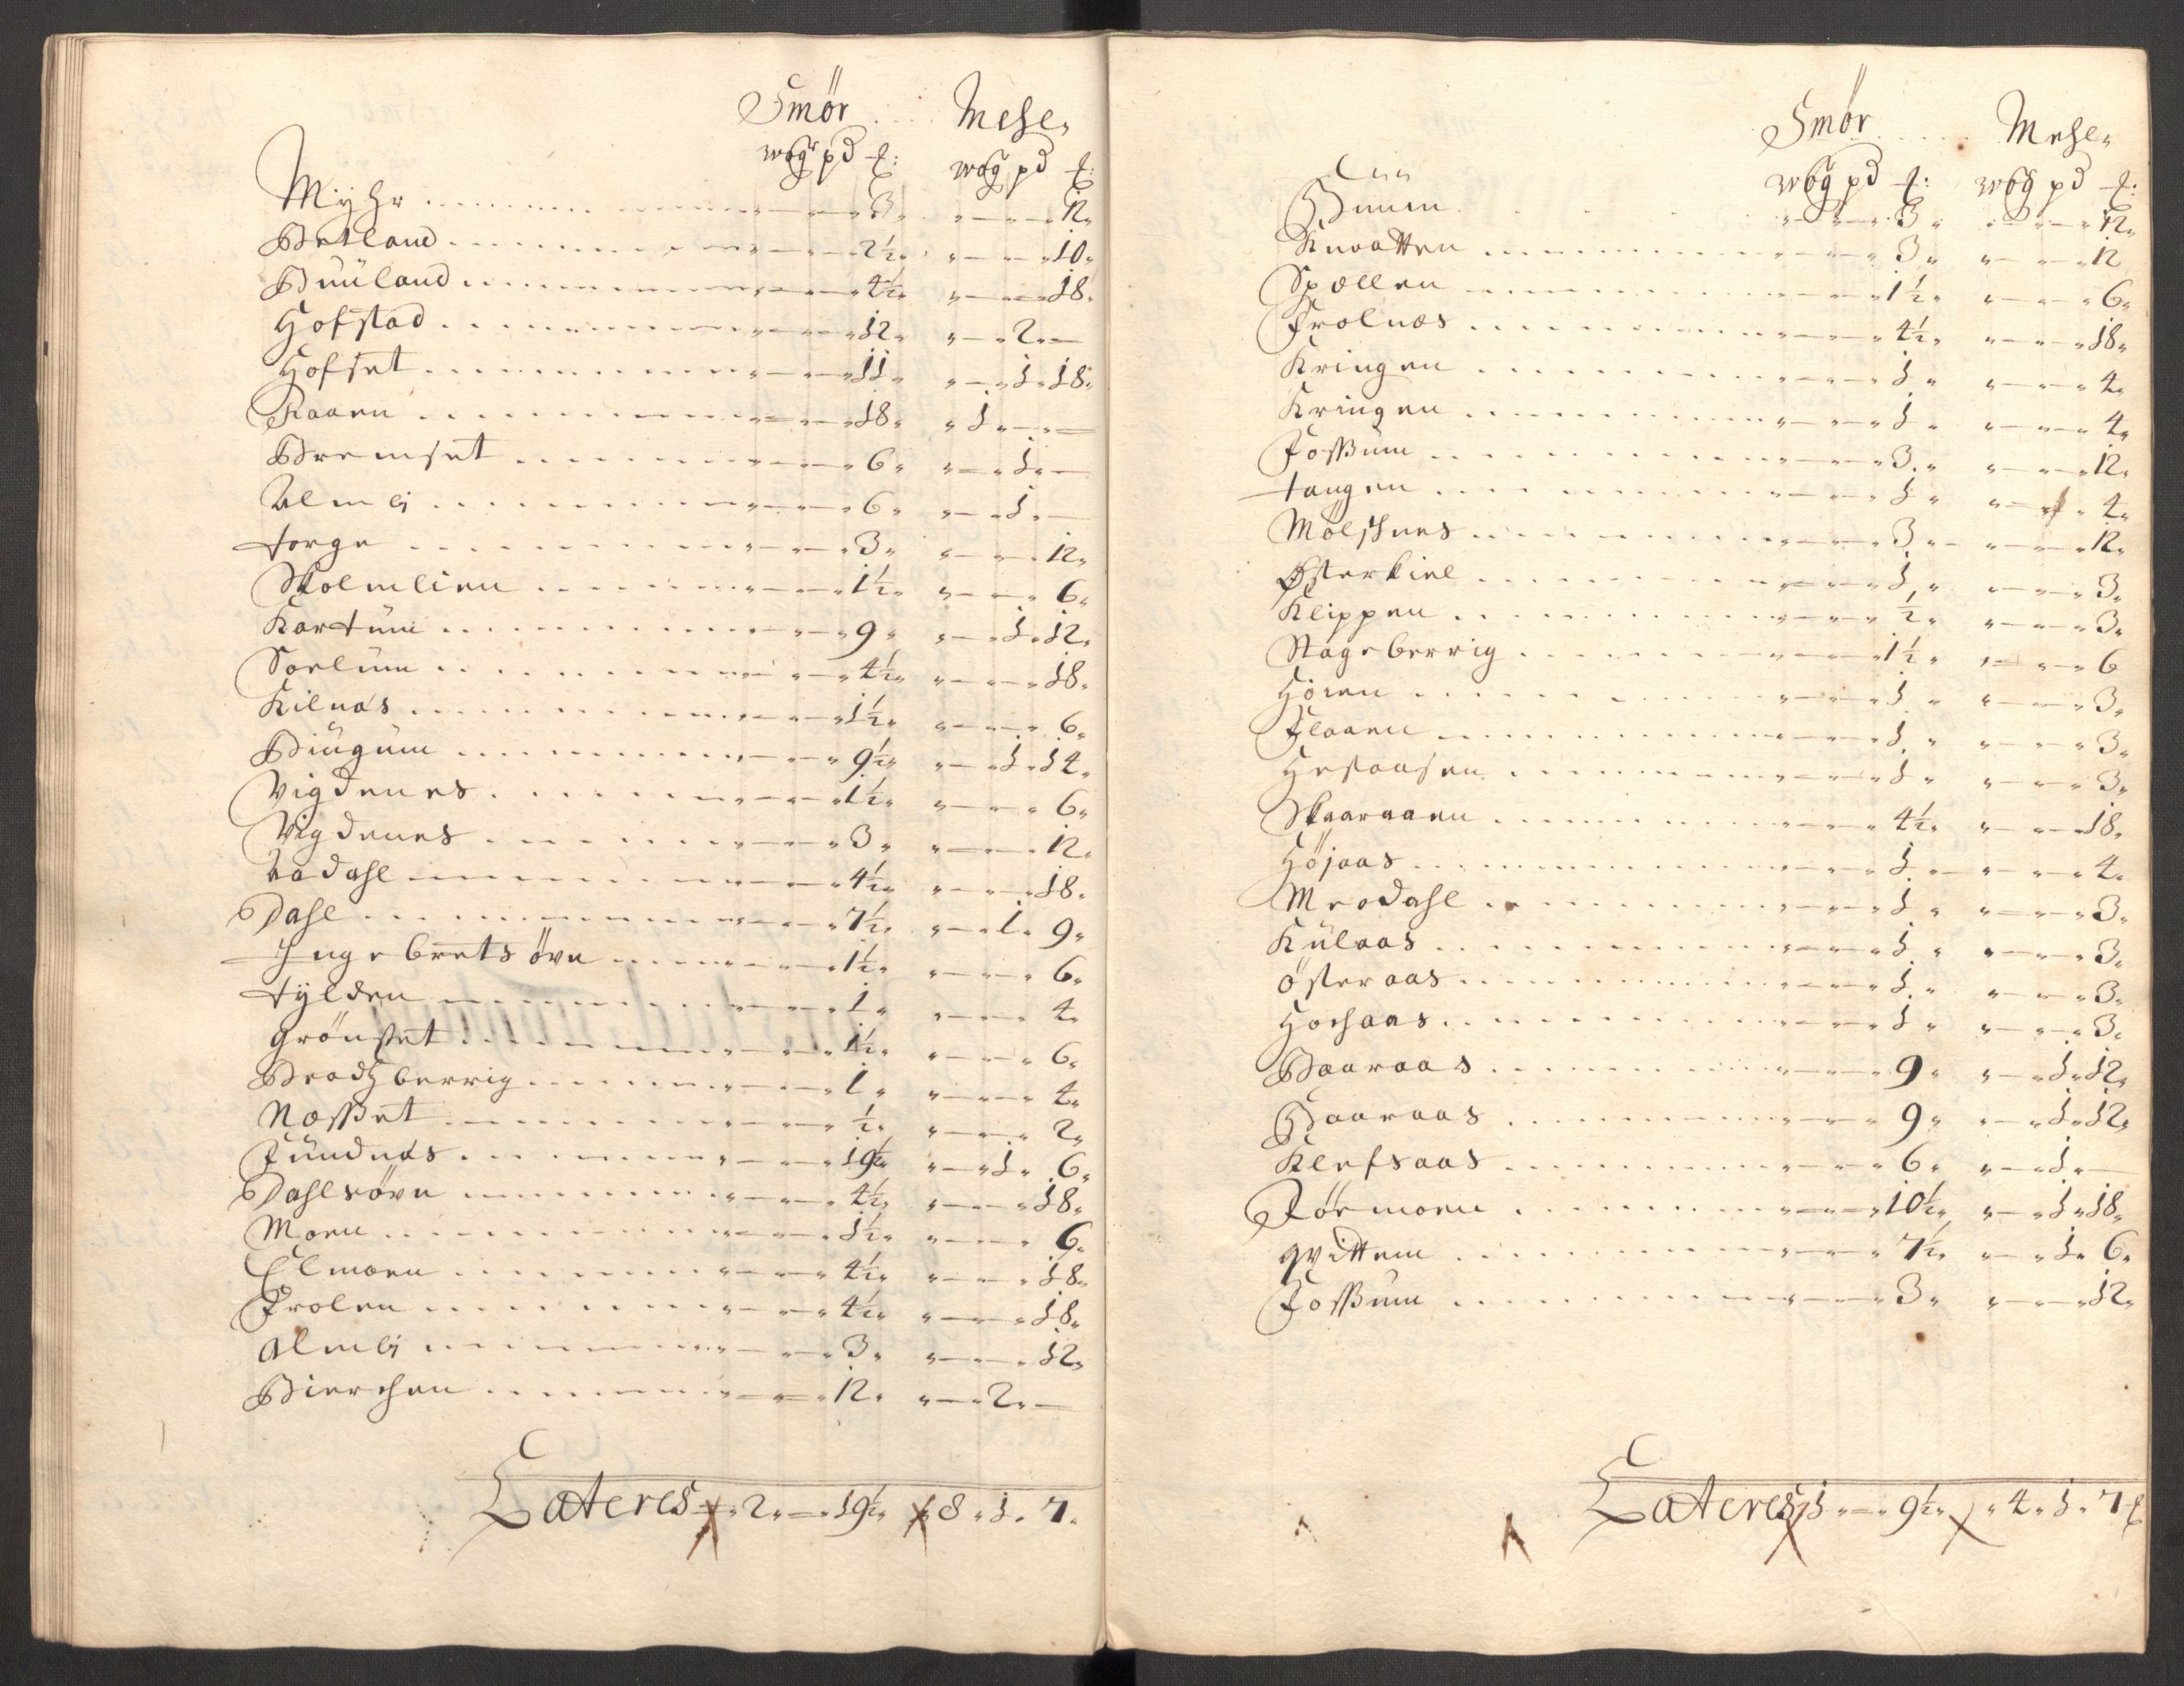 Smör Mehl
wog pd ℔: wog pd ℔:
Myhr 3 " — " 12
Betland 2½ " — " 10
Buuland 4½ " — " 18
Hofstad 12 " — 2 " —
Hofset 11 " — 1 " 18
Raaen 18 " 1 " — " —
Bremset 6 " — 1 " —
Almlj 6 " — 1 " —
torge 3 " — " 12
Skolmlien 1½ " — " 6
Kartum 9 " — 1 " 12
Soelum 4½ " — " 18
Kilnæs 1½ " — " 6
Biugum 9½ " — 1 " 14
Vigdenes 1½ " — " 6
Vigdenes 3 " — " 12
Aadahl 4½ " — " 18
Dahl 7½ " — 1 " 9
Ingebretsövn 1½ " — " 6
tylden 1 " — " 4
Grönset 1½ " — " 6
Bradtzberrig 1 " — " 4
Næsset ½ " — " 2
Fundnæs 19½ " — 1 " 6
Dahlsövn 4½ " — " 18
Moen 1½ " — " 6
Elmoen 4½ " — " 18
Frolen 4½ " — " 18
Almlj 3 " — " 12
Bierchen 12 " — 2 " —
Lateres 2 " — " 19½ " 8 " 1 " 7
Smör Mehl
wog pd ℔: wog pd ℔:
Buum 3 " — " 12
Knoatten 3 " — " 12
Spællen 1½ " — " 6
Frolnæs 4½ " — " 18
Kringen 1 " — " 4
Kringen 1 " — " 4
Fossum 3 " — " 12
tangen 1 " — " 4
Mölschnes 3 " — " 12
Østerkiel 1 " — " 3
Klippen ½ " — " 3
Stageberrig 1½ " — " 6
Höien 1 " — " 3
Flaaen 1 " — " 3
Hestaasen 1 " — " 3
Skaaraaen 4½ " — " 18
Höjaas 1 " — " 4
Meodahl 1 " — " 3
Kulaas 1 " — " 3
österaas 1 " — " 3
Hochaas 1 " — " 3
Baaraas 9 " — 1 " 12
Baaraas 9 " — 1 " 12
Klefsaas 6 " — 1 " —
Förmoen 10½ " — 1 " 18
qvittem 7½ " — 1 " 6
Fossum 3 " — " 12
Lateres 1 " — " 9½ " 4 " 1 " 7 ℔